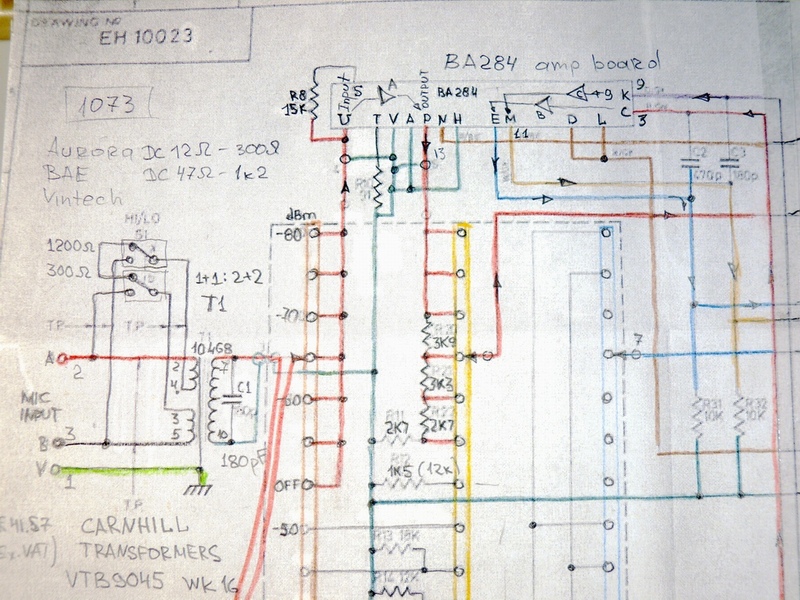 DRAWING NO
EH 10023
BA284 amp board
1073
Aurora DC 12Ω - 300Ω
BAE DC 47Ω - 1k2
Vintech
R8
15K
Input
5
A
OUTPUT
BA284
+9
9
K
C
3
U T V A P N H E M B D L
11
13
C2
470p
C3
180p
dBm
-80
-70
-60
OFF
-50
HI/LO
S1
1200Ω
300Ω
1+1:2+2
T1
T.P. T.P.
10468
A
2
MIC
INPUT
B
3
V
1
2
4
3
5
7
10
C1
180pF
T.P.
3K9
3K3
R11
2K7
2K7
1K5 (12K)
7
R31
10K
R32
10K
R13 18K
R14 12K
CARNHILL
TRANSFORMERS
VTB9045 WK 16
Ex. VAT)